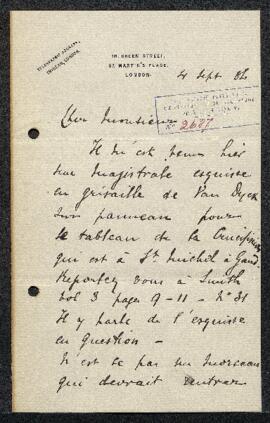 TELEGRAPHIC ADDRESS,
LONDON.
10, GREEN STREET,
ST MARTIN'S PLACE,
LONDON.
4 Sept 02
Cher Monsieur
No 2687
Il m'est venu hier
une magistrale esquisse
en grisaille de Van Dyck
sur panneau pour
le tableau de la Crucifixion
qui est à St Michel à Gand
Reportez vous à Smith
vol 3 pages 9-11 - No 31
Il y parle de l'esquisse
en question -
N'est ce pas un morceau
qui devrait rentrer